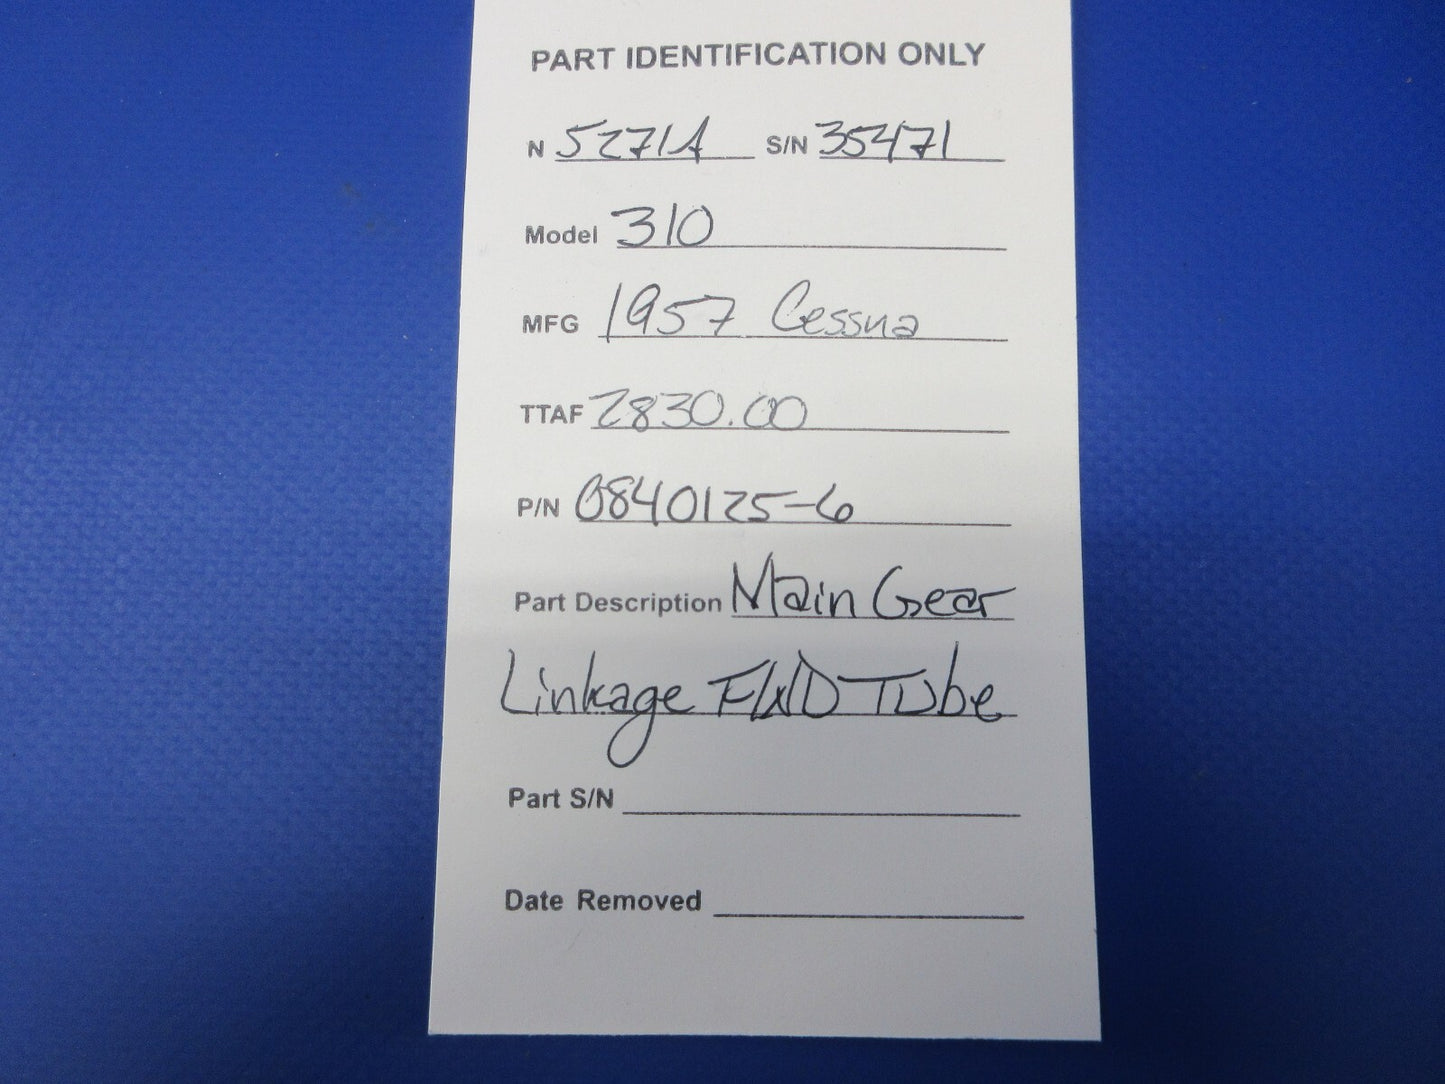 PART IDENTIFICATION ONLY
N 5271A S/N 35471
Model 310
MFG 1957 Cessna
TTAF 2830.00
P/N 0840125-6
Part Description Main Gear
Linkage FWD Tube
Part S/N
Date Removed